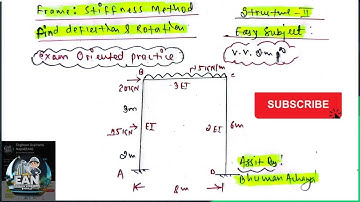 Frame: Stiffness Method
Structure-II
Find deflection & Rotation
Easy Subject:
Exam Oriented practice
V.V. Imp
15KN/m
20KN
B
C
3EI
3m
SUBSCRIBE
25KN
EI
2EI
6m
2m
A
D
Assit By:
8m
Bhuman Acharya
EAN